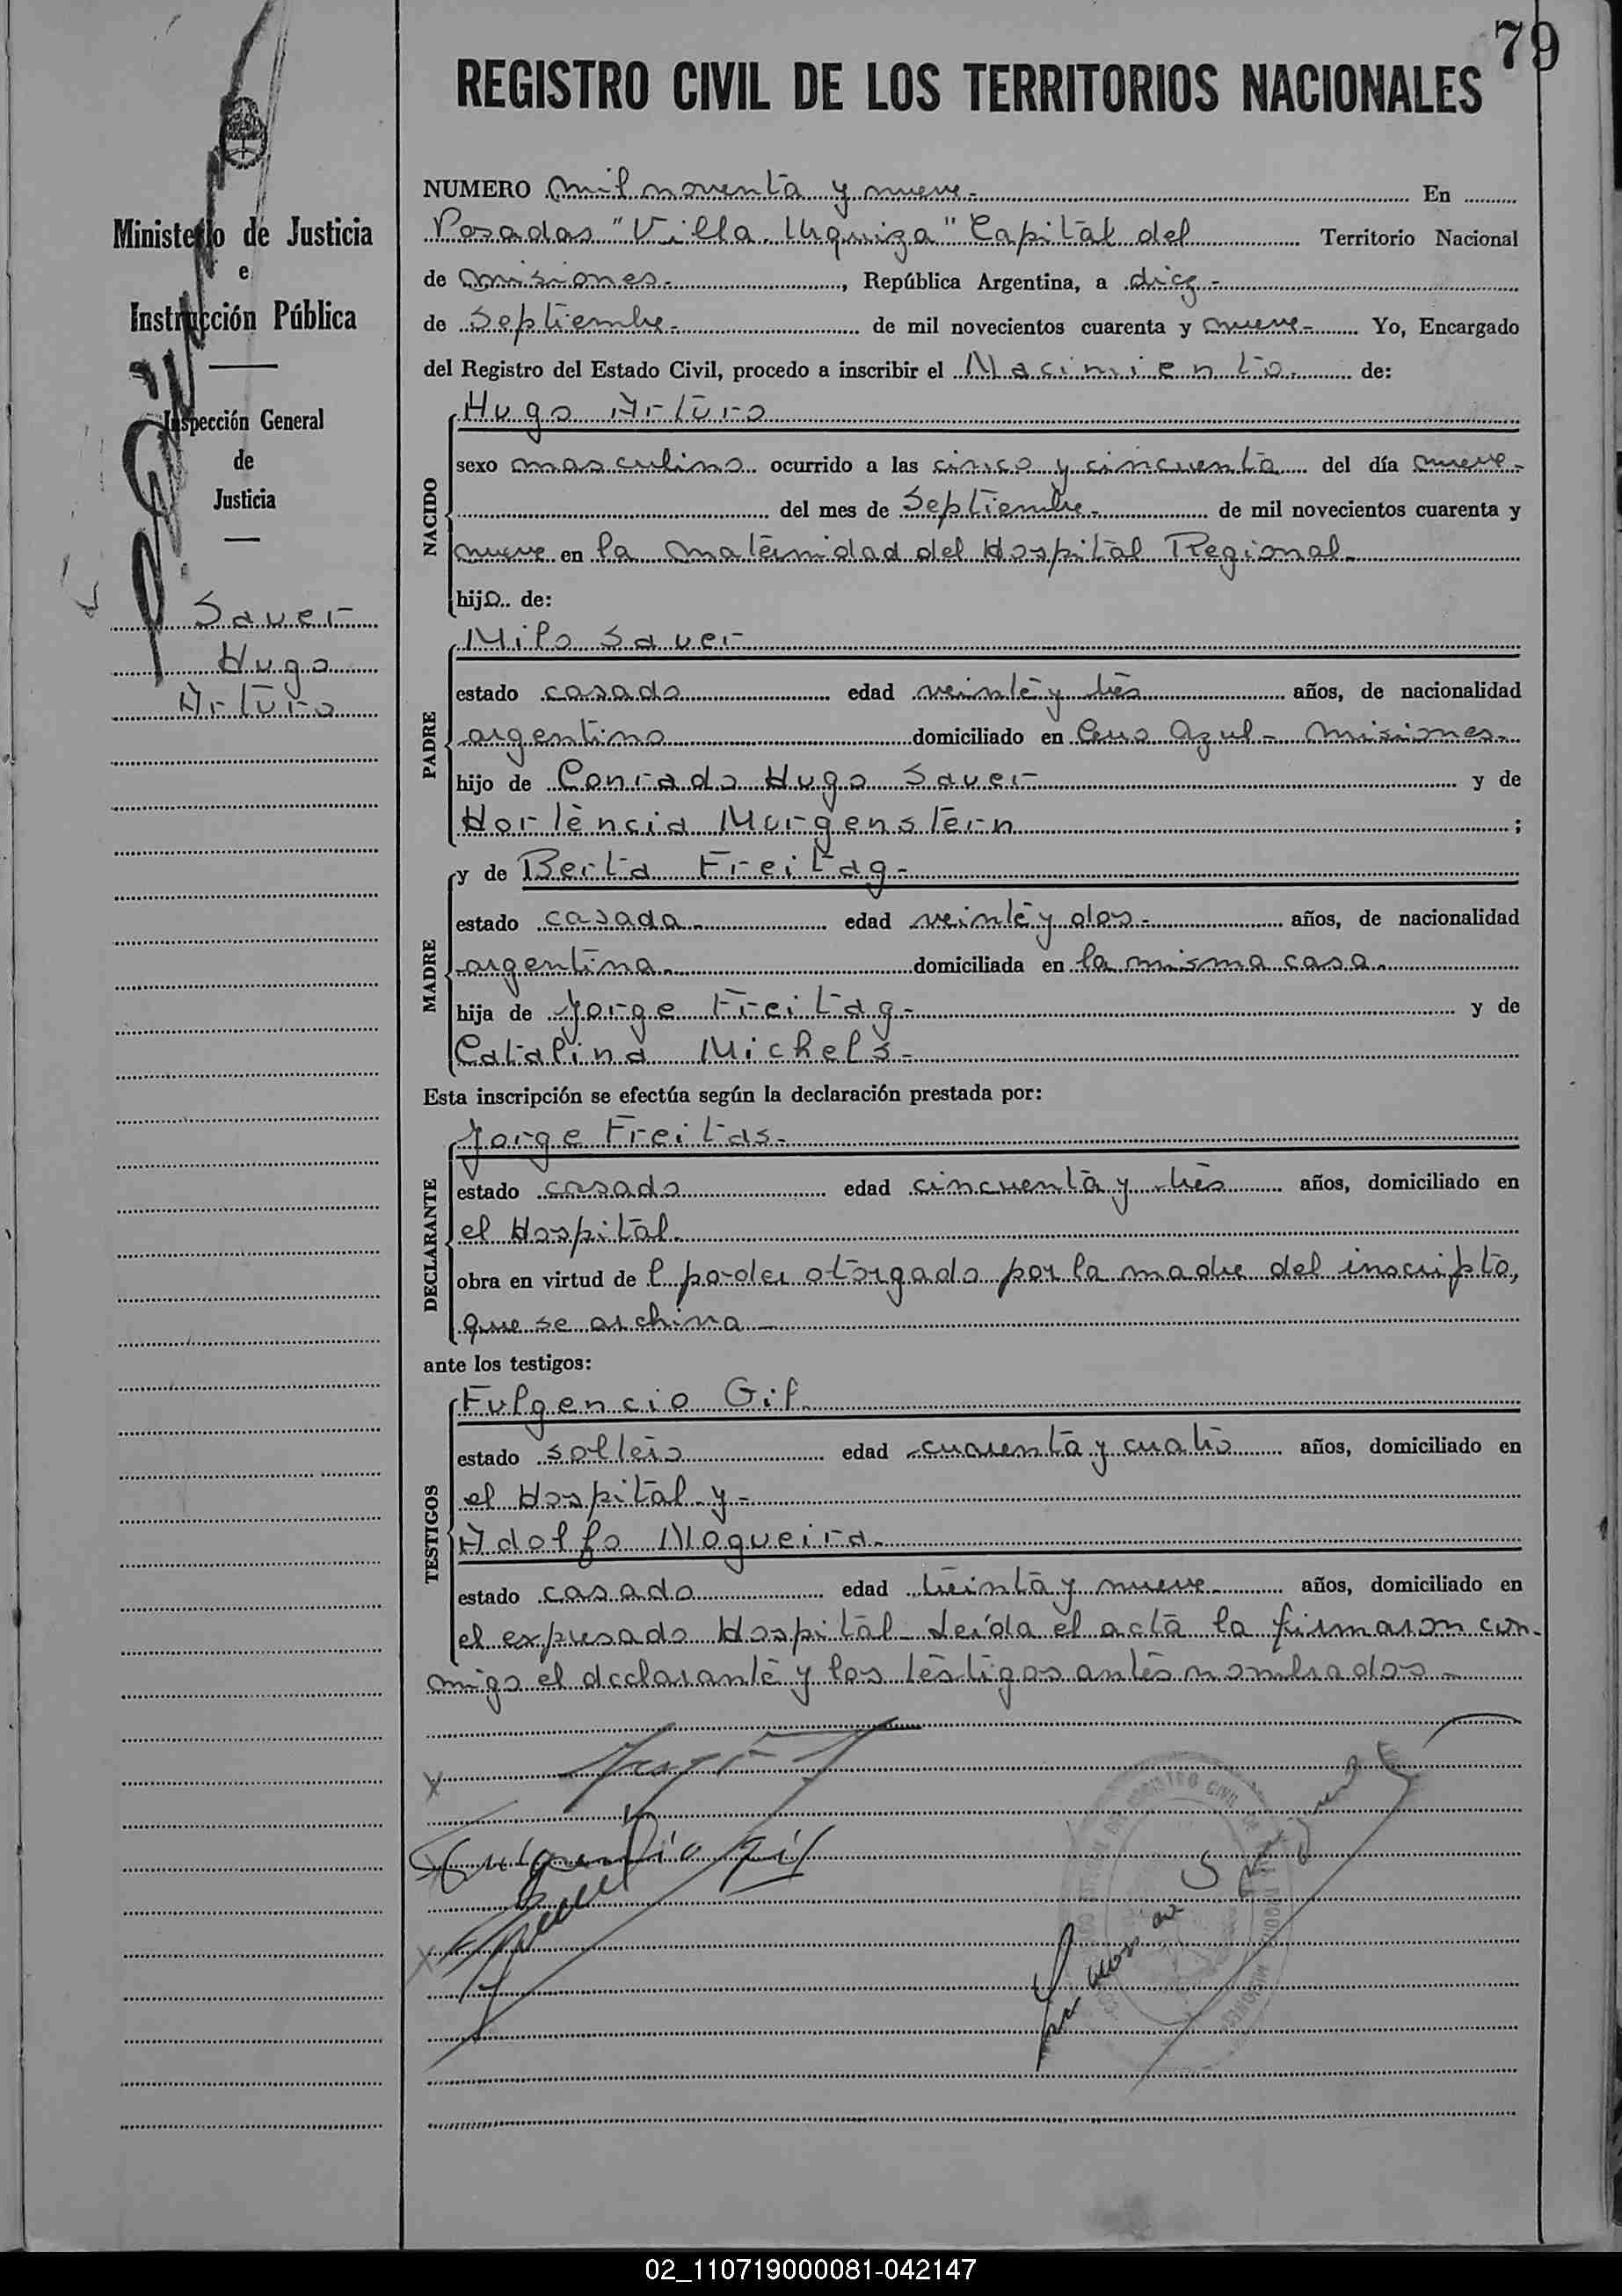 79
REGISTRO CIVIL DE LOS TERRITORIOS NACIONALES
Ministerio de Justicia
e
Instrucción Pública
Inspección General
de
Justicia
Sauer
Hugo
Arturo
NUMERO mil noventa y nueve.- En
Posadas "Villa Urquiza" Capital del Territorio Nacional
de Misiones.-, República Argentina, a diez.-
de Septiembre.- de mil novecientos cuarenta y nueve.- Yo, Encargado
del Registro del Estado Civil, procedo a inscribir el Nacimiento de:
NACIDO
Hugo Arturo
sexo masculino ocurrido a las cinco y cincuenta del día nueve-
del mes de Septiembre.- de mil novecientos cuarenta y
nueve en la maternidad del Hospital Regional.
hijo de:
PADRE
Milo Sauer
estado casado edad veinte y tres años, de nacionalidad
argentino domiciliado en Cerro Azul - Misiones.
hijo de Conrado Hugo Sauer y de
Hortencia Morgenstern ;
MADRE
y de Berta Freitag.-
estado casada.- edad veinte y dos.- años, de nacionalidad
argentina. domiciliada en la misma casa.
hija de Jorge Freitag.- y de
Catalina Michels.-
Esta inscripción se efectúa según la declaración prestada por:
DECLARANTE
Jorge Freitas.
estado casado edad cincuenta y tres años, domiciliado en
el Hospital.
obra en virtud del poder otorgado por la madre del inscripto,
que se archiva
ante los testigos:
TESTIGOS
Fulgencio Gil.
estado soltero edad cuarenta y cuatro años, domiciliado en
el Hospital y-
Adolfo Nogueira.
estado casado edad treinta y nueve años, domiciliado en
el expresado Hospital - Leída el acta la firmaron con-
migo el declarante y los testigos antes nombrados -
Fulgencio Gil
REGISTRO CIVIL DE
MISIONES
02_110719000081-042147